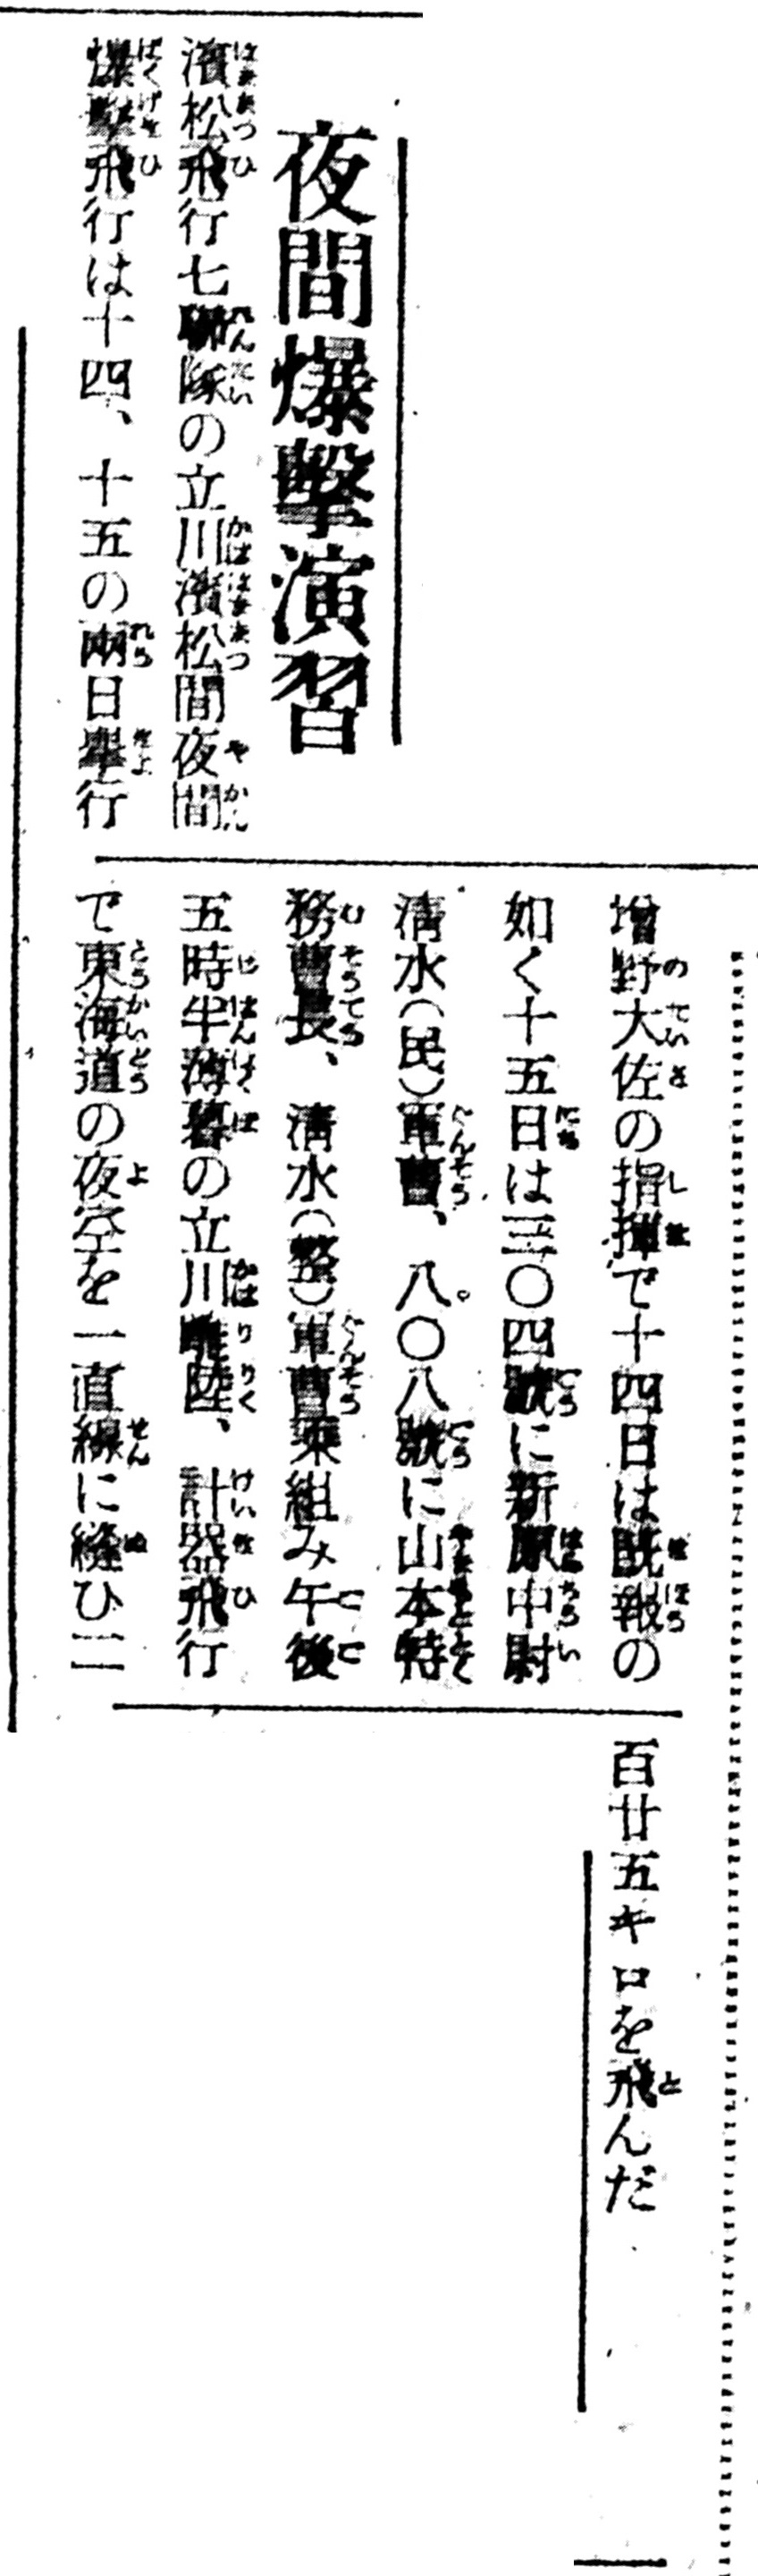 夜間爆擊演習
濱松飛行七聯隊の立川濱松間夜間
爆擊飛行は十四、十五の兩日擧行
增野大佐の指揮で十四日は既報の
如く十五日は三〇四號に新原中尉
淸水(民)軍曹、八〇八號に山本特
務曹長、淸水(整)軍曹乘組み午後
五時半薄暮の立川離陸、計器飛行
で東海道の夜空を一直線に縫ひ二
百廿五キロを飛んだ